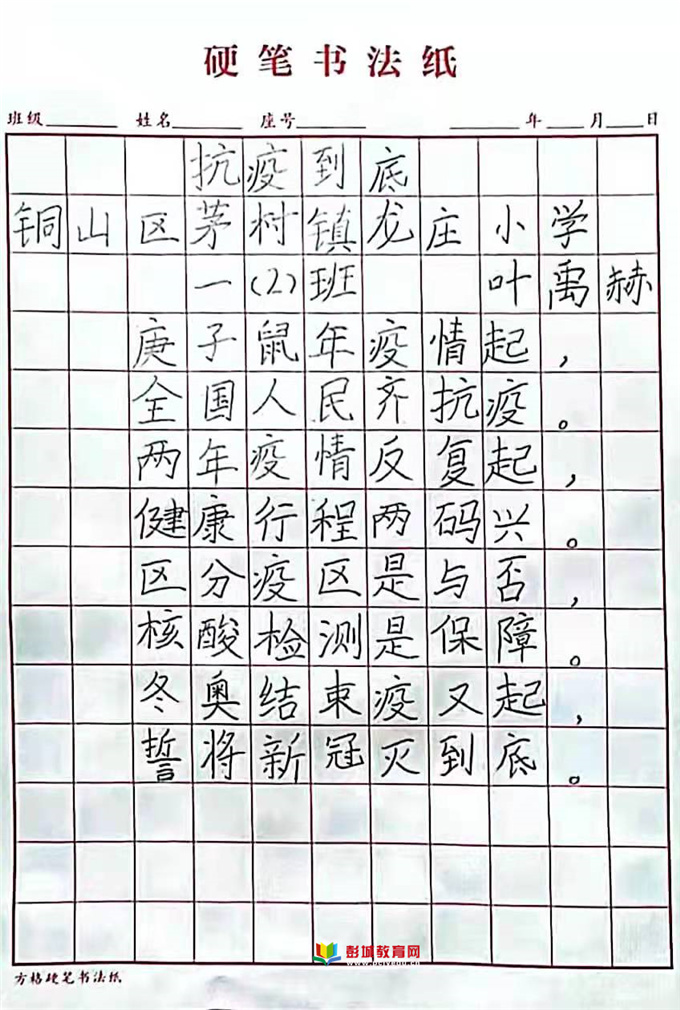 硬笔书法纸
班级 姓名 座号 年 月 日
抗疫到底
铜山区茅村镇龙庄小学
一(2)班 叶禹赫
庚子鼠年疫情起，
全国人民齐抗疫。
两年疫情反复起，
健康行程两码兴。
区分疫区是与否，
核酸检测是保障。
冬奥结束疫又起，
誓将新冠灭到底。
彭城教育网
方格硬笔书法纸